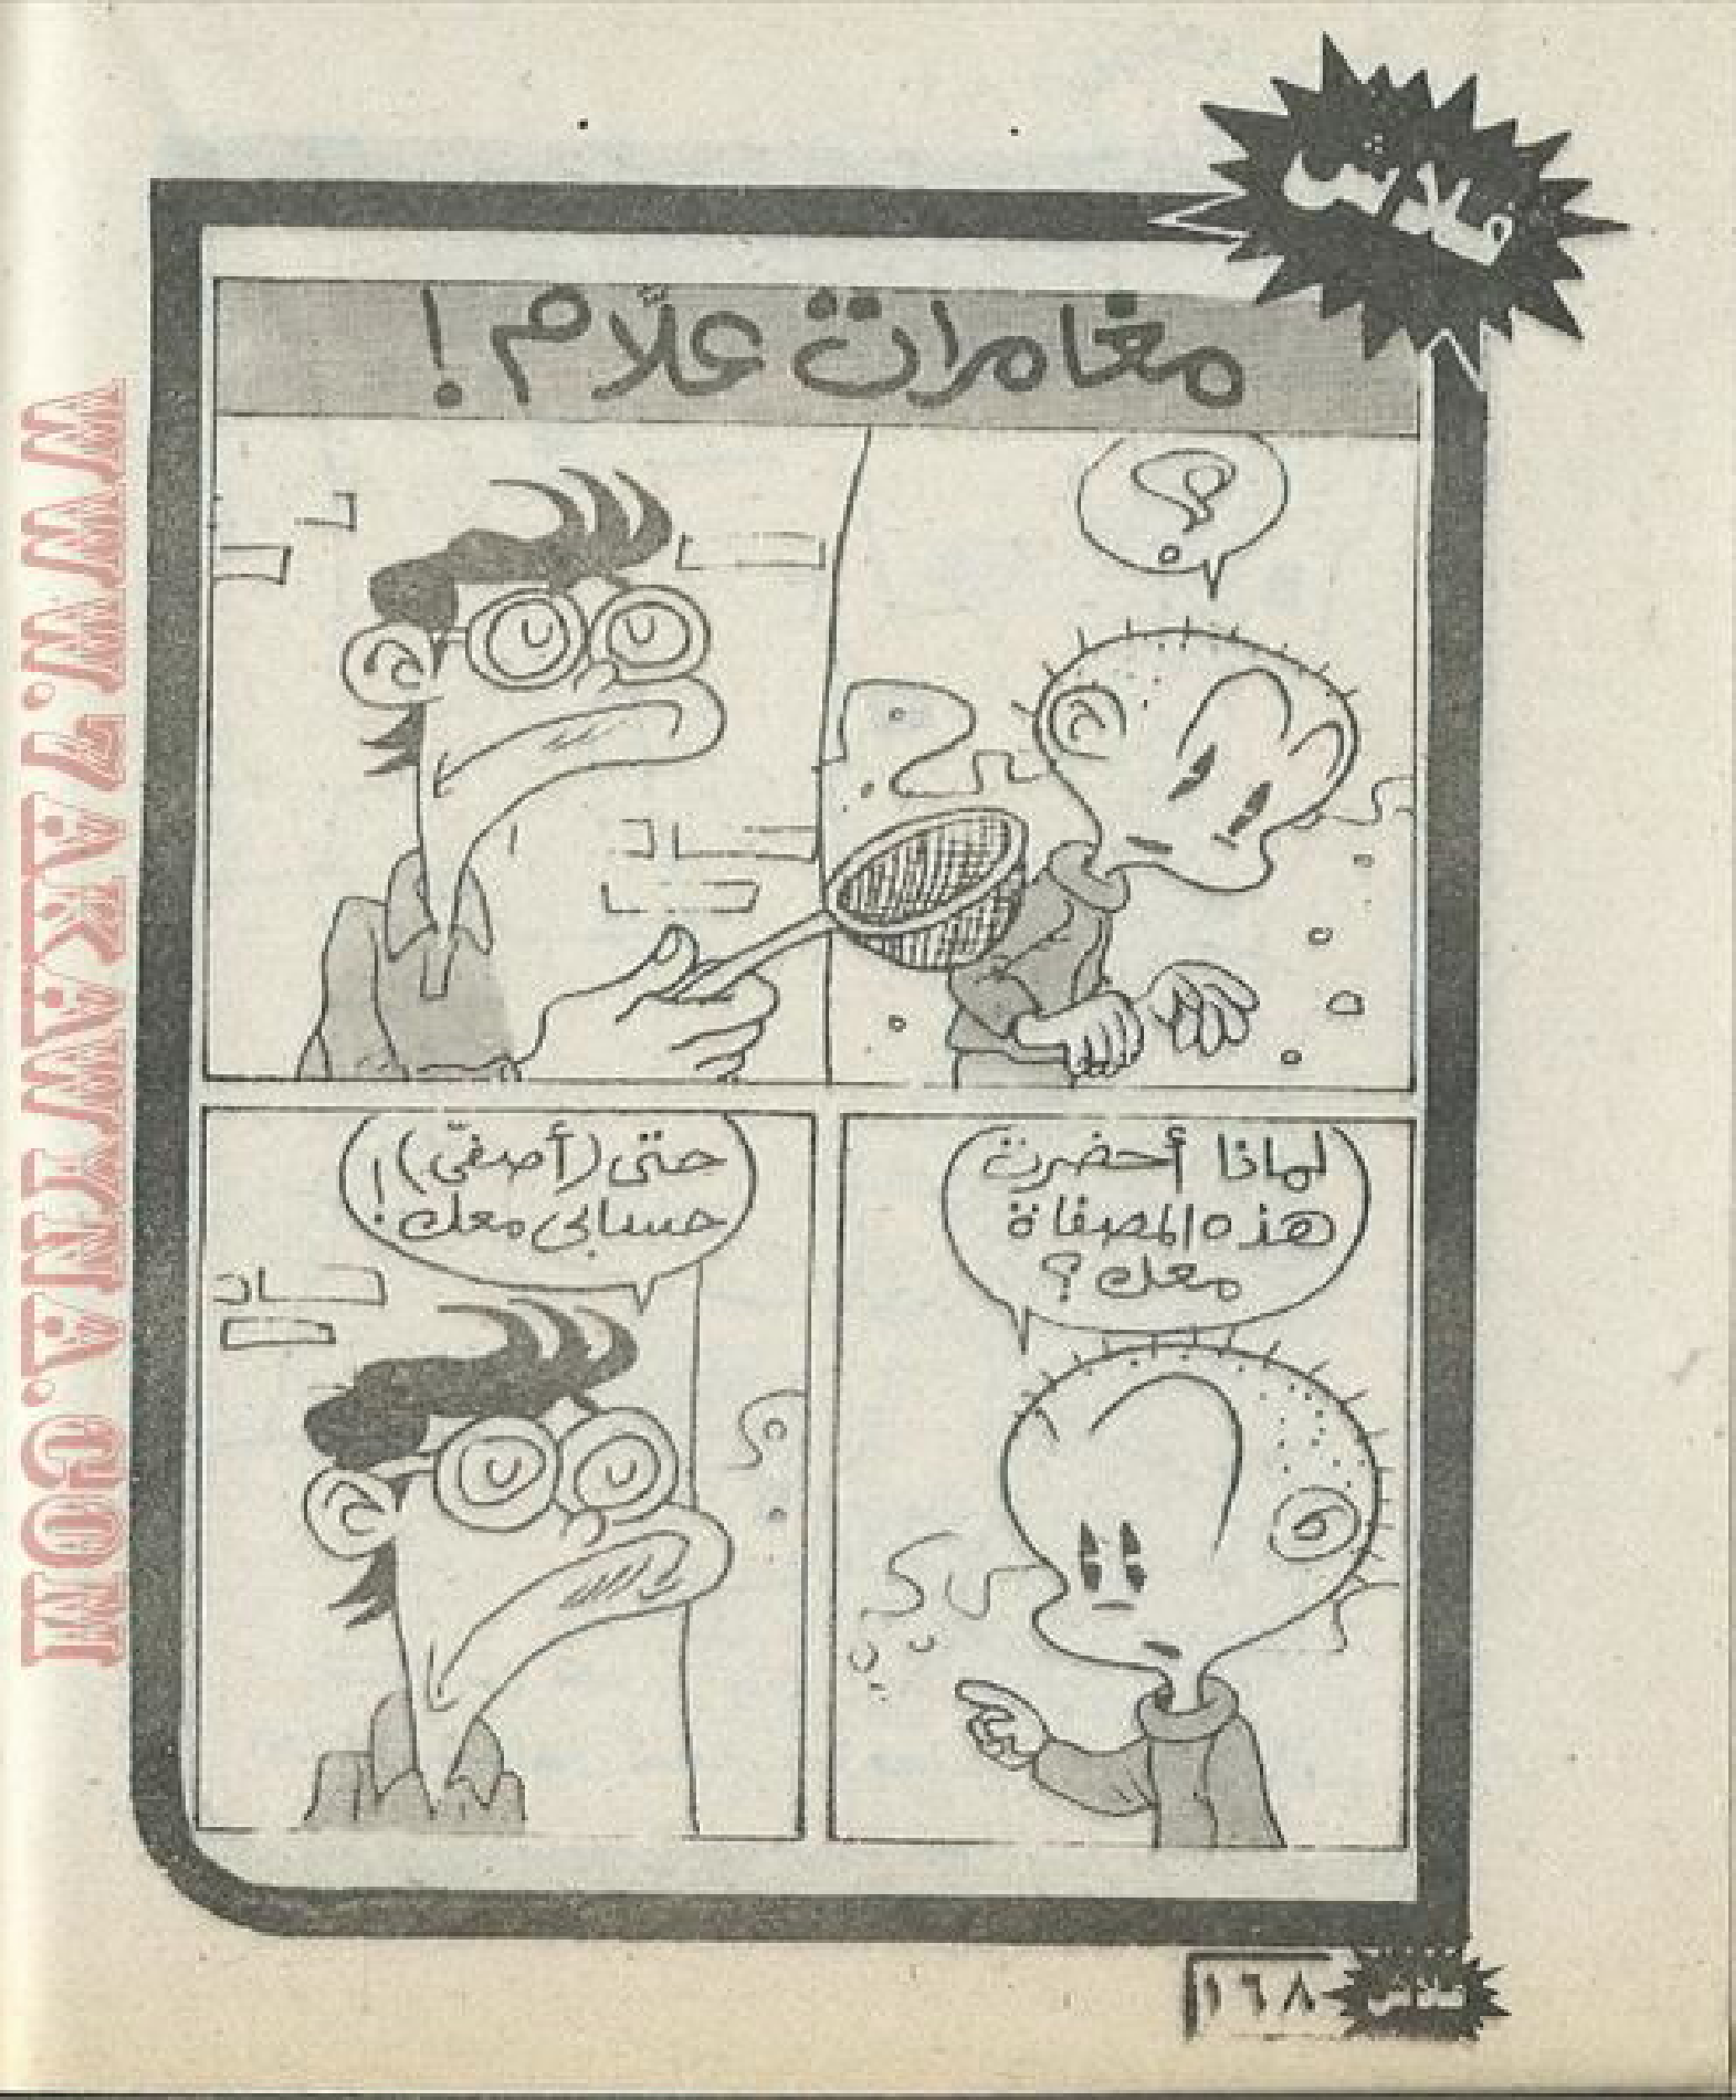 فلاش
مغامرات علاّم!
؟
لماذا أحضرت
هذه المصفاة
معك؟
حتى (أصفّى)
حسابى معك!!
١٦٨
فلاش
WWW.7AKAWETNA.COM